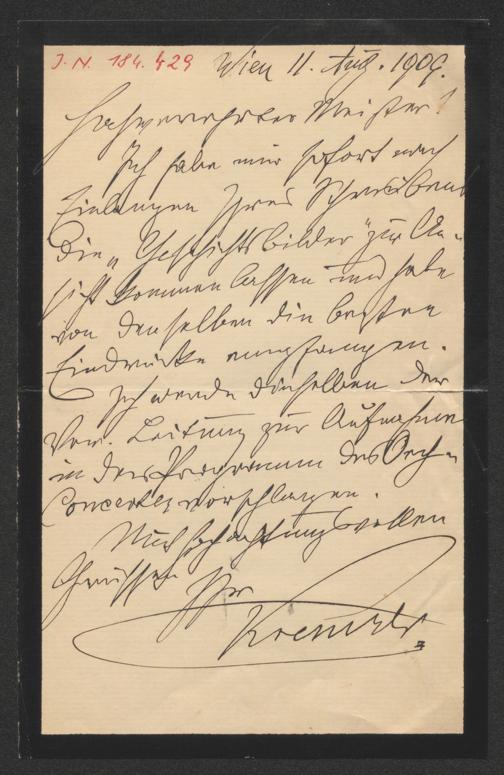 J. N. 184.429
Wien 11. Aug. 1909.
Hochverehrter Meister!
Ich habe mir sofort nach
Einlangen Ihres Schreibens
die „Geschichtsbilder" zur An-
sicht kommen lassen und habe
von denselben die besten
Eindrücke empfangen.
Ich werde dieselben der
Ver. Leitung zur Aufnahme
in das Programm des Orch-
Concertes vorschlagen.
Mit hochachtungsvollen
Grüssen Ihr
Kremser